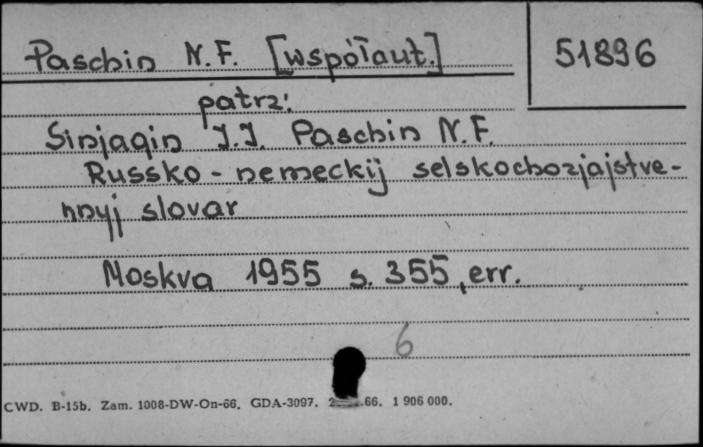 Paschin N.F. [współaut.]
51896
patrz:
Sinjagin I.I. Paschin N.F.
Russko-nemeckij selskochozjajstve-
nnyj slovar
Moskva 1955 s. 355, err.
6
CWD. B-15b. Zam. 1008-DW-On-66. GDA-3097. .66. 1 906 000.